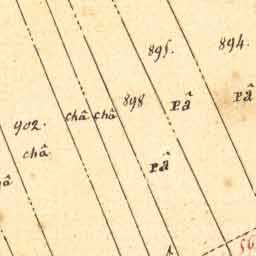 895.
894.
898
Pâ
Pâ
châ
châ
902.
châ
Pâ